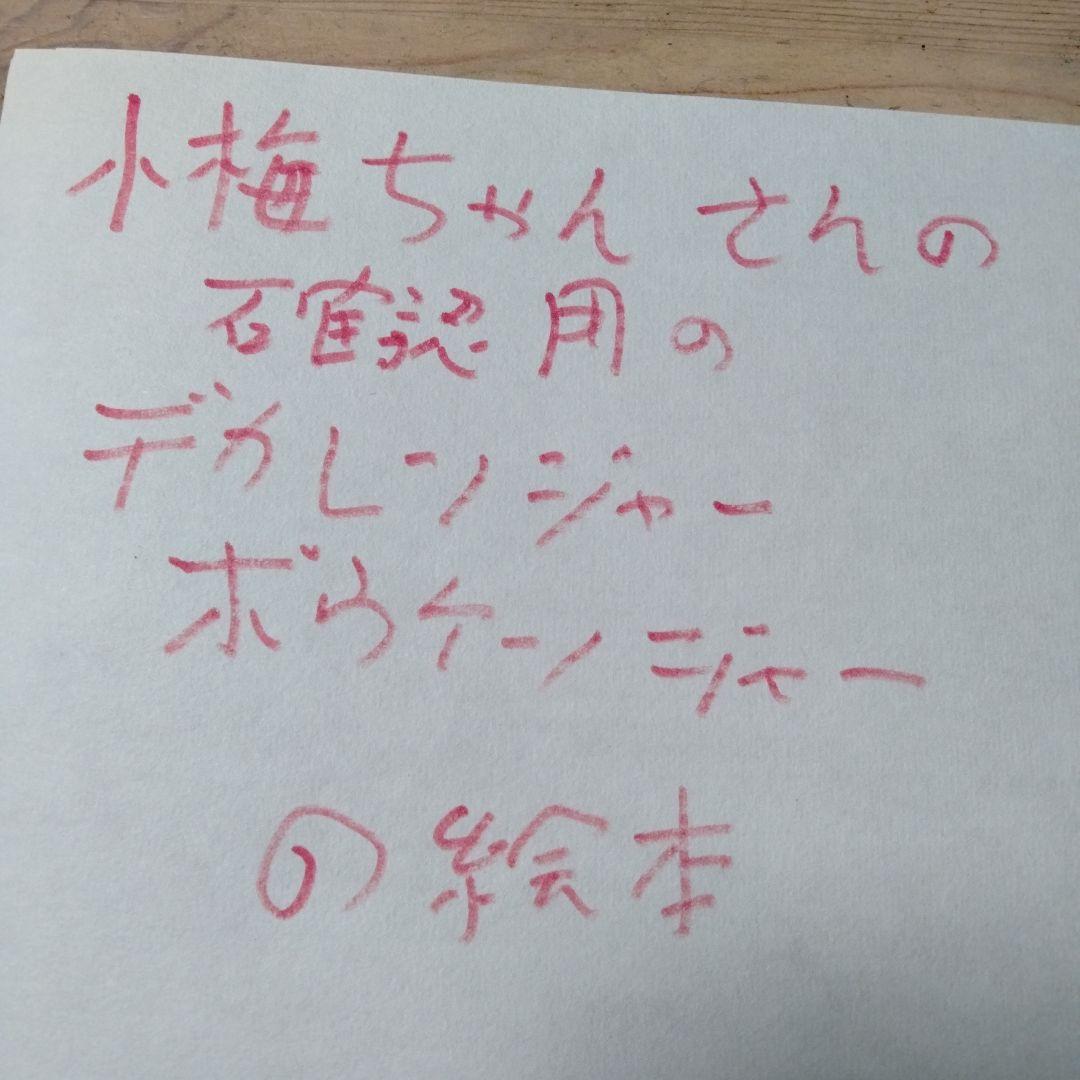 小梅ちゃん さんの
確認用の
デカレンジャー
ボウケンジャー
の絵本